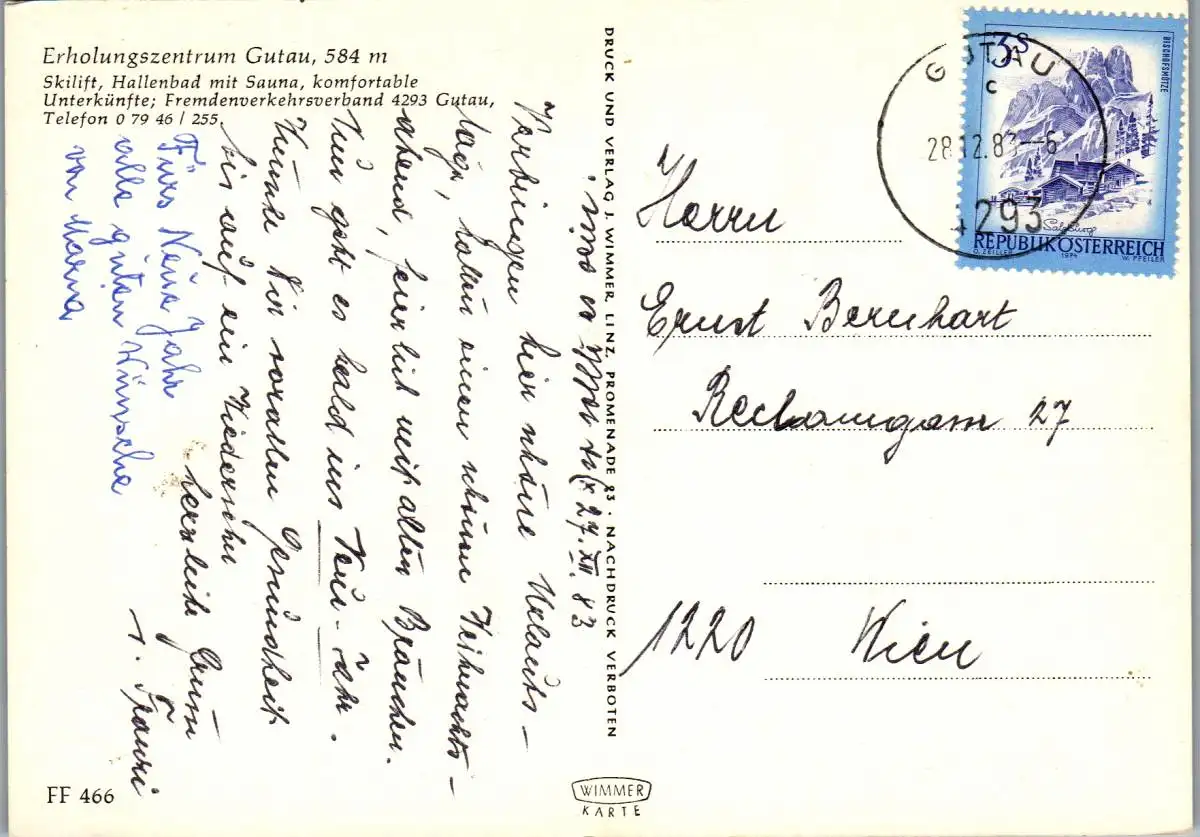 Erholungszentrum Gutau, 584 m
Skilift, Hallenbad mit Sauna, komfortable
Unterkünfte; Fremdenverkehrsverband 4293 Gutau,
Telefon 0 79 46 / 255.
27. XII. 83
Verbringen hier schöne Urlaubs-
tage, hatten einen schönen Weihnachts-
abend, feierlich mit alten Bräuchen.
Nun geht es bald ins Neue Jahr.
Wünsche Dir vor allem Gesundheit
bis auf ein Wiedersehn
herzliche Grüße
Fürs Neue Jahr
alle guten Wünsche
von Maria
FF 466
DRUCK UND VERLAG J. WIMMER, LINZ, PROMENADE 23 · NACHDRUCK VERBOTEN
WIMMER
KARTE
GUTAU
c
28.12.83-6
4293
3 S
BISCHOFSMÜTZE
Salzburg
REPUBLIK ÖSTERREICH
O. ZEILLER 1974 W. PFEILER
Herrn
Ernst Bernhart
27
1220 Wien